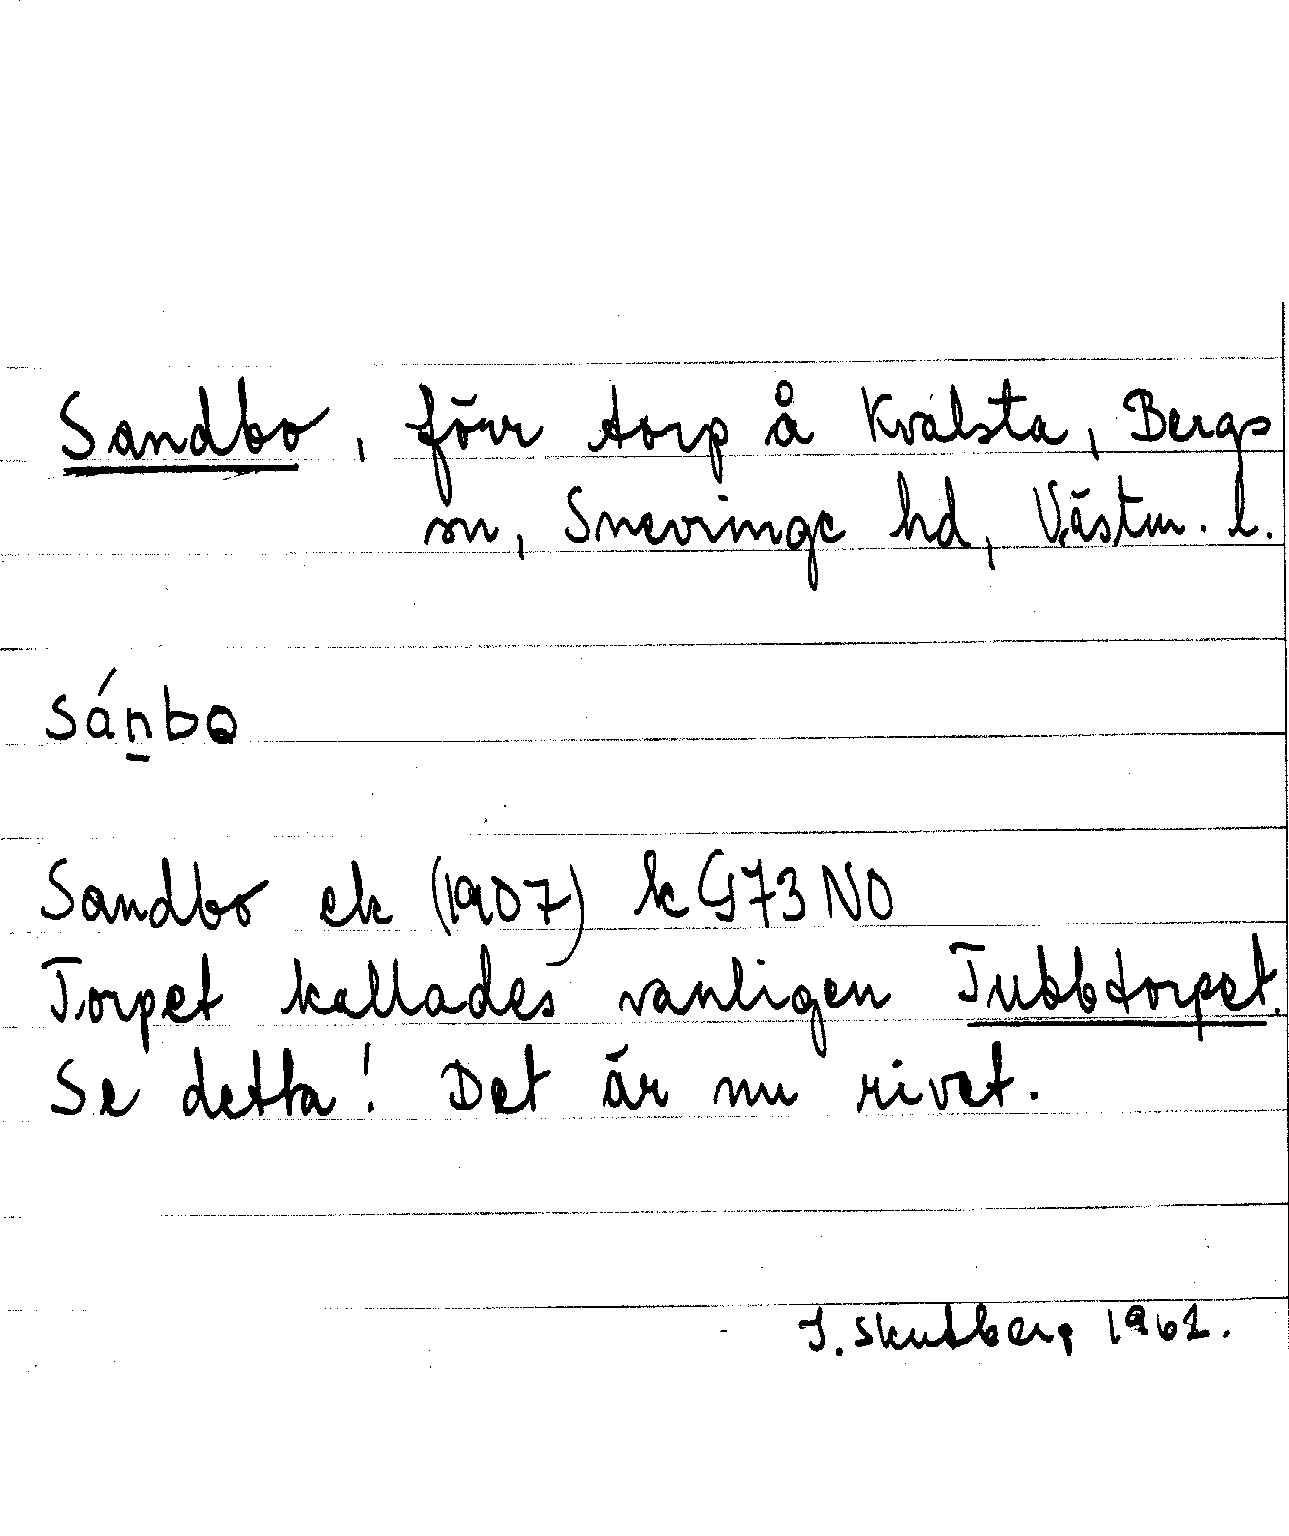 Sandbo, förr torp å Kvalsta, Bergs
sn, Snevringe hd, Västm. l.
sánbo
Sandbo ek (1907) k G73 NO
Torpet kallades vanligen Tubbtorpet.
Se detta! Det är nu rivet.
J. Skutberg 1961.